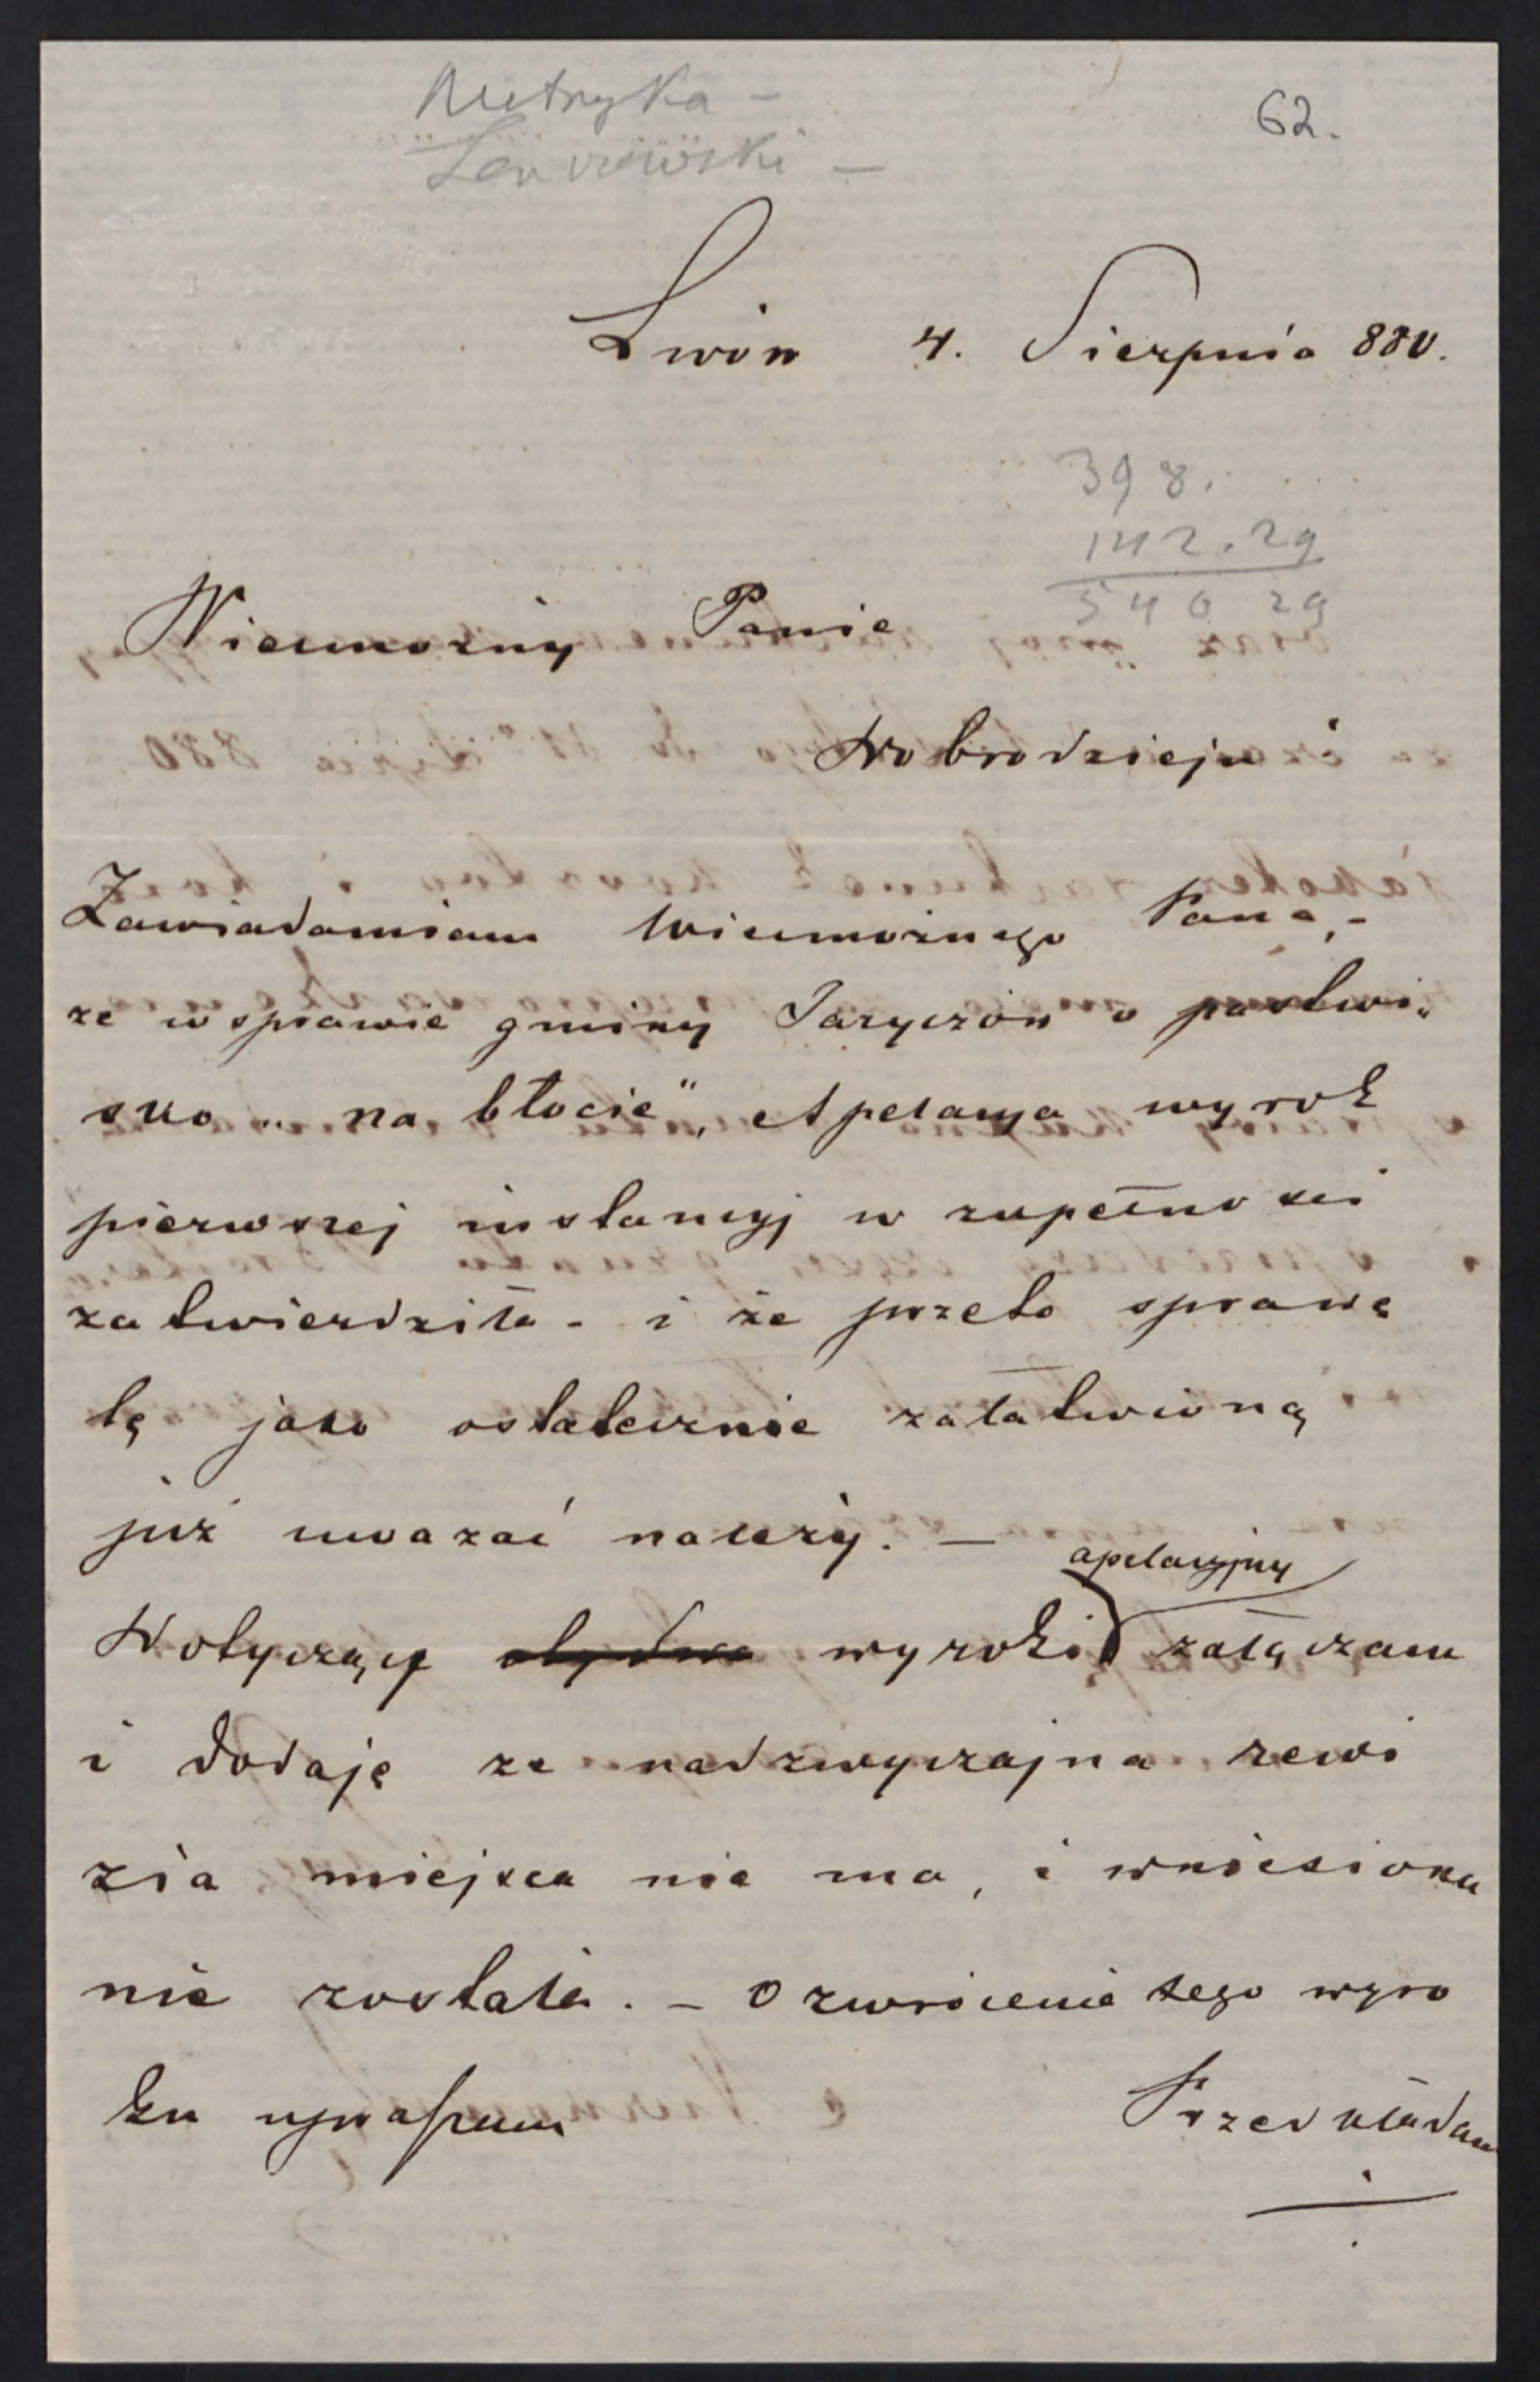 Metryka –
62.
Lwów 4. Sierpnia 880.
398.
142.29
540 29
Wielmożny Panie
Dobrodzieju
Zawiadamiam Wielmożnego Pana, –
że w sprawie gminy Jaryczów o pastwi„
sko „na błocie”, Apelacya wyrok
pierwszej instancyj w zupełności
zatwierdziła – i że przeto sprawę
tę jako ostatecznie załatwioną
już uważać należy. –
apelacyjny
Dotyczący obydwa wyroki załączam
i dodaję że nadzwyczajna rewi
zia miejsca nie ma, i wniesioną
nie została. – O zwrócenie tego wyro
ku upraszam
Przedkładam